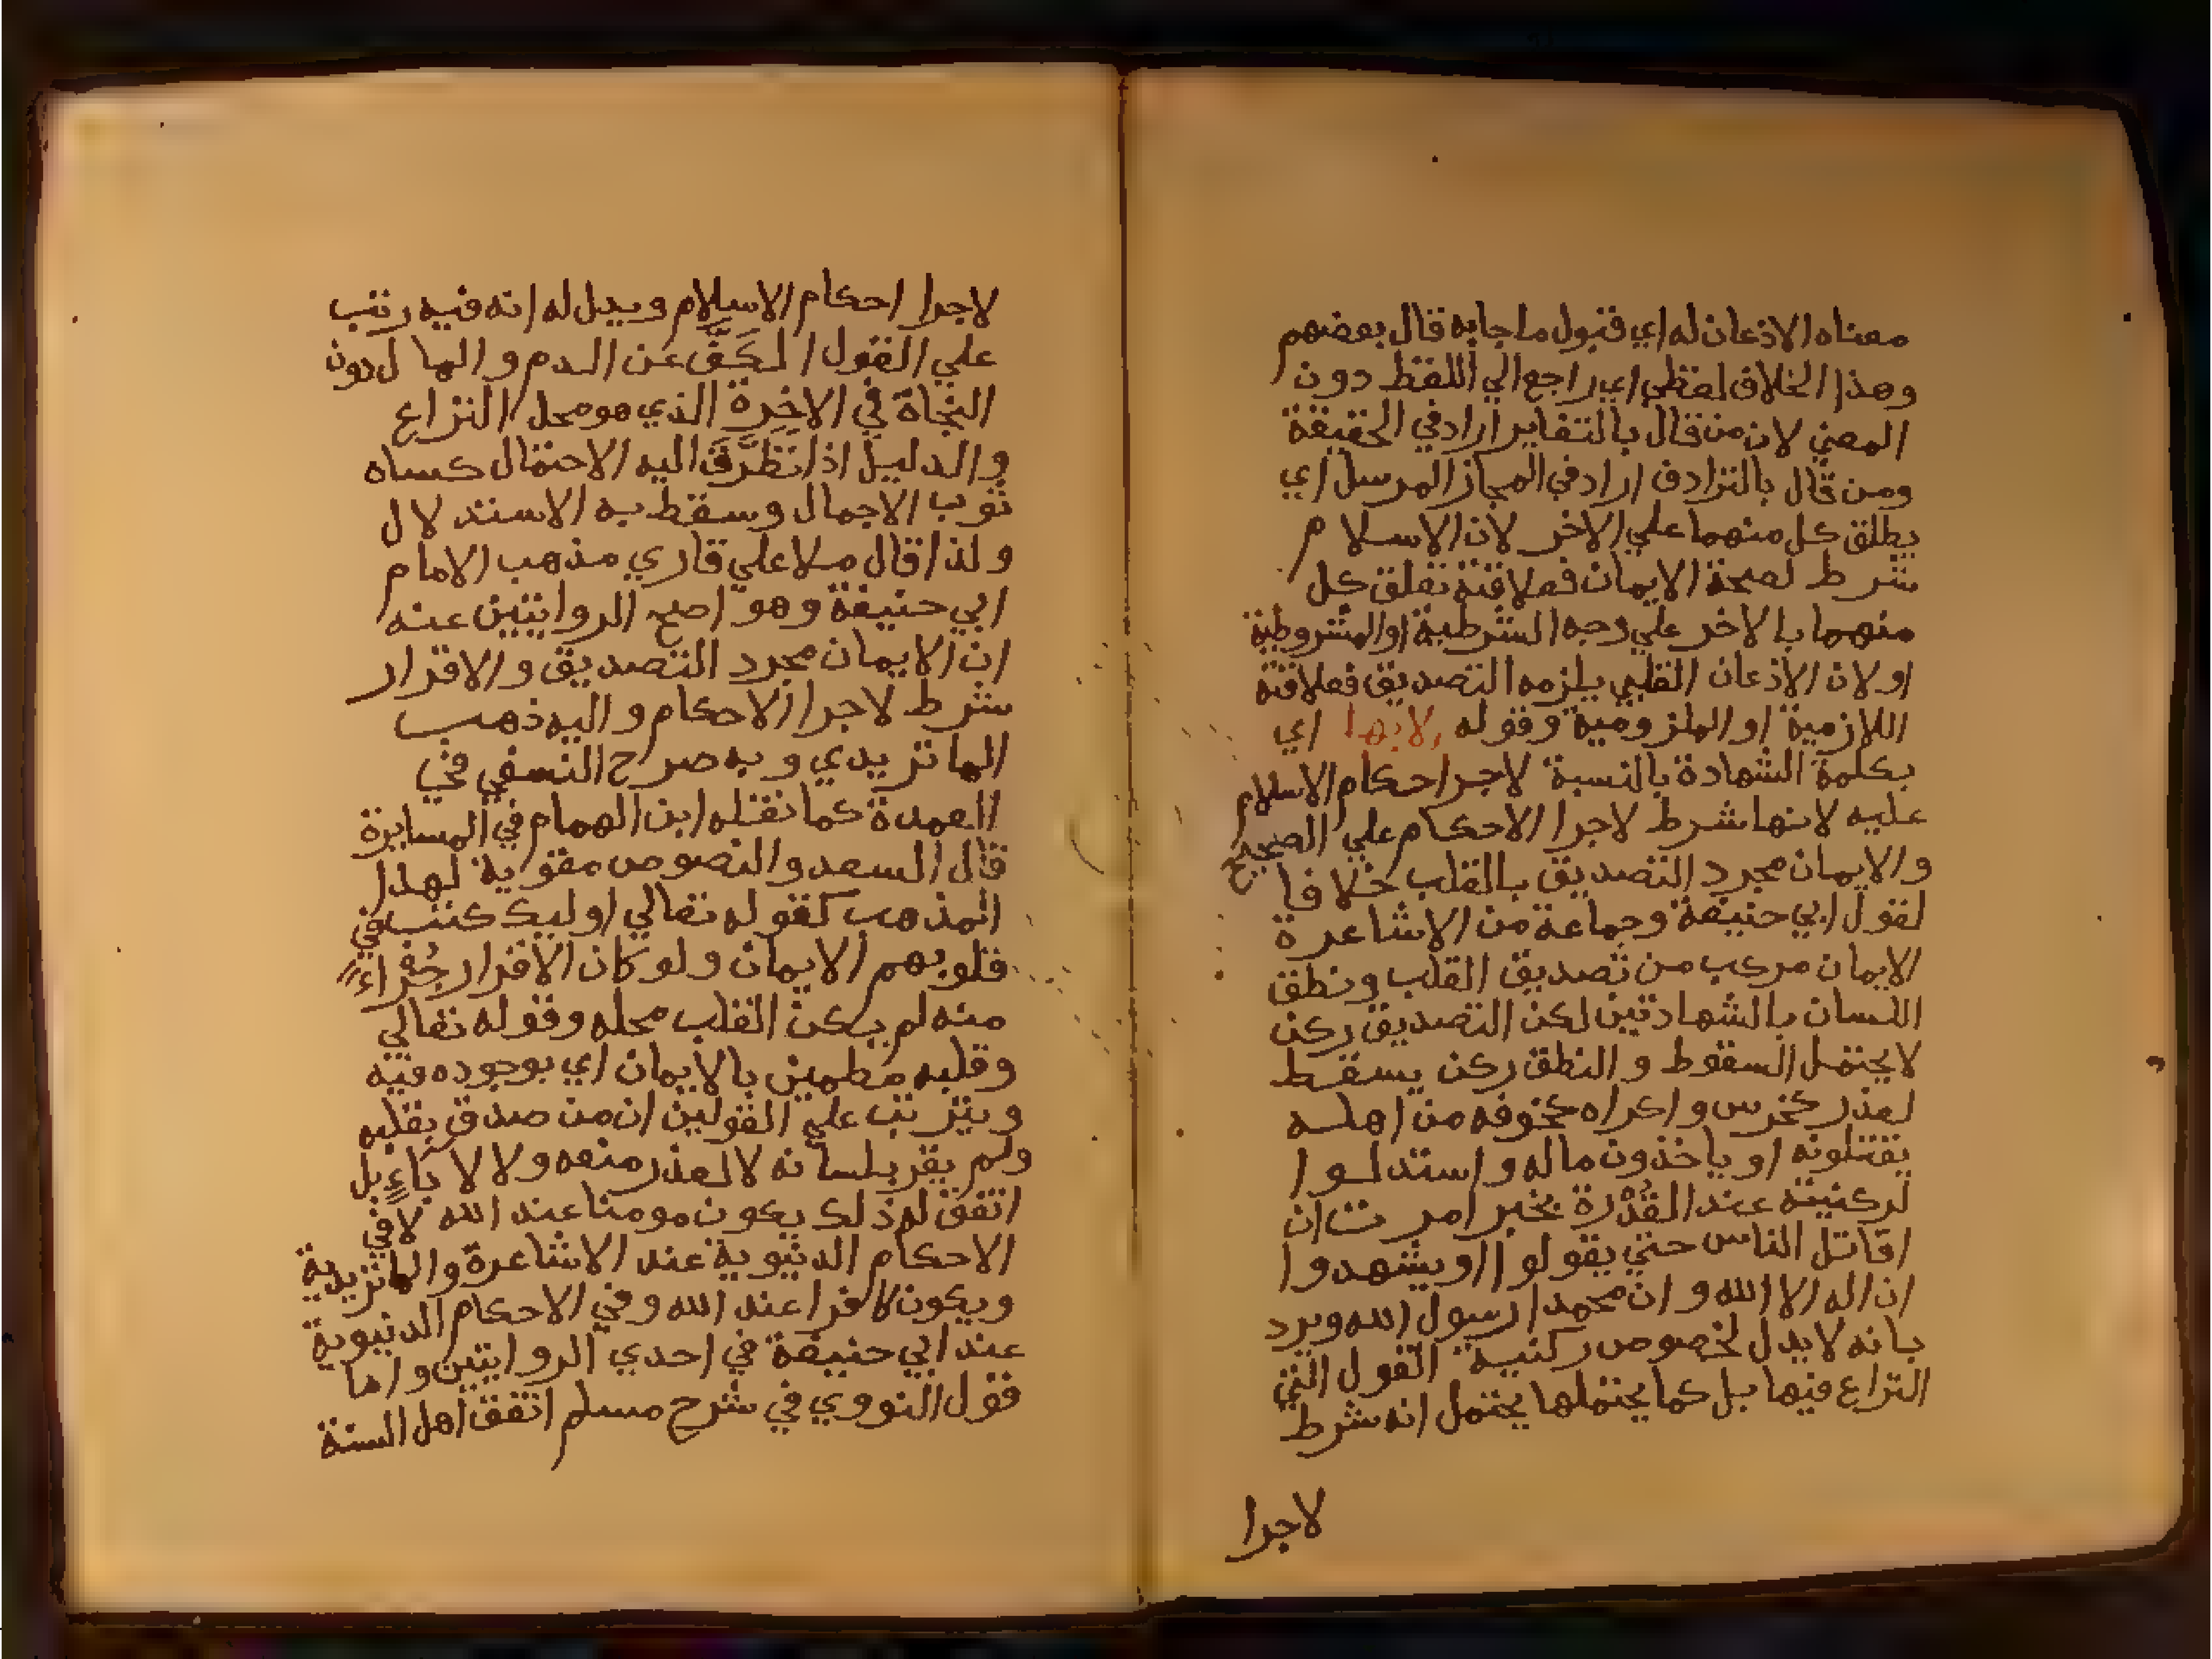 معناه الاذعان له اي قبول ما جا به قال بعضهم
وهذا الخلاف لفظي اي راجع الي اللفظ دون
المعني لان من قال بالتغاير اراد في الحقيقة
ومن قال بالترادف اراد في المجاز المرسل اي
يطلق كل منهما علي الاخر لان الاسلام
شرط لصحة الايمان فعلاقته تعلق كل
منهما بالاخر علي وجه الشرطية او المشروطية
او لان الاذعان القلبي يلزمه التصديق فعلاقته
اللازمية او الملزومية وقوله لابها اي
بكلمة الشهادة بالنسبة لاجرا حكام الاسلام
عليه لانها شرط لاجرا الاحكام علي الصحيح
والايمان مجرد التصديق بالقلب خلافا
لقول ابي حنيفة وجماعة من الاشاعرة
الايمان مركب من تصديق القلب ونطق
اللسان بالشهادتين لكن التصديق ركن
لا يحتمل السقوط والنطق ركن يسقط
لعذر كخرس واكراه كخوفه من اهله
يقتلونه او ياخذون ماله واستدلوا
لركنيته عند القُدْرة بخبر امرت ان
اقاتل الناس حتي يقولوا او يشهدوا
ان اله الا الله وان محمدا رسول الله ويرد
بانه لا يدل لخصوص ركنية القول التي
النزاع فيها بل كما يحتملها يحتمل انه شرط
لاجرا
لاجرا احكام الاسلام ويدل له انه فيه رتب
علي القول الكَفَّ عن الدم والمال دون
النجاة في الاخِرة الذي هو محل النزاع
والدليل اذا تَطَرَّقَ اليه الاحتمال كساه
ثوب الاجمال وسقط به الاستدلال
ولذا قال ملا علي قاري مذهب الامام
ابي حنيفة وهو اصح الروايتين عنه
ان الايمان مجرد التصديق والاقرار
شرط لاجرا الاحكام واليه ذهب
الماتريدي وبه صرح النسفي في
العمدة كما نقله ابن الهمام في المسايرة
قال السعد والنصوص مقوية لهذا
المذهب كقوله تعالي اوليك كتب في
قلوبهم الايمان ولو كان الاقرار جُزاءً
منه لم يكن القلب محله وقوله تعالي
وقلبه مطمين بالايمان اي بوجوده فيه
ويترتب علي القولين ان من صدق بقلبه
ولم يقر بلسانه لا لعذر منعه ولا لاباءٍ بل
اتفق له ذلك يكون مومنا عند الله لا في
الاحكام الدنيوية عند الاشاعرة والماتريدية
ويكون كافرا عند الله وفي الاحكام الدنيوية
عند ابي حنيفة في احدي الروايتين واما
قول النووي في شرح مسلم اتفق اهل السنة